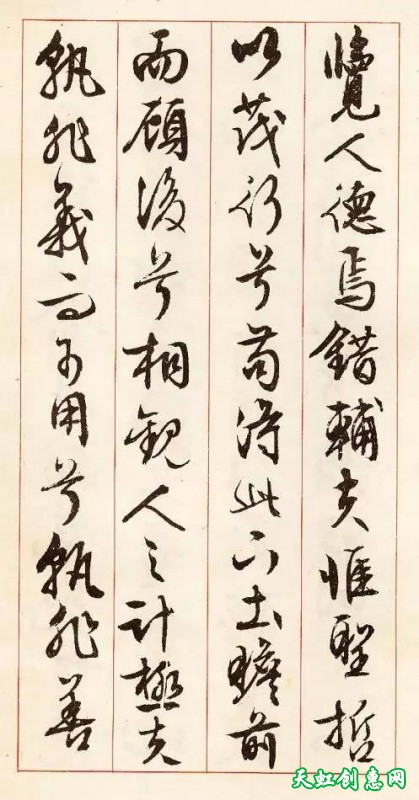 覽人德焉錯輔夫惟聖哲
以茂行兮苟得此下土瞻前
而顧後兮相觀人之計極夫
孰非義而可用兮孰非善
天虹创惠网